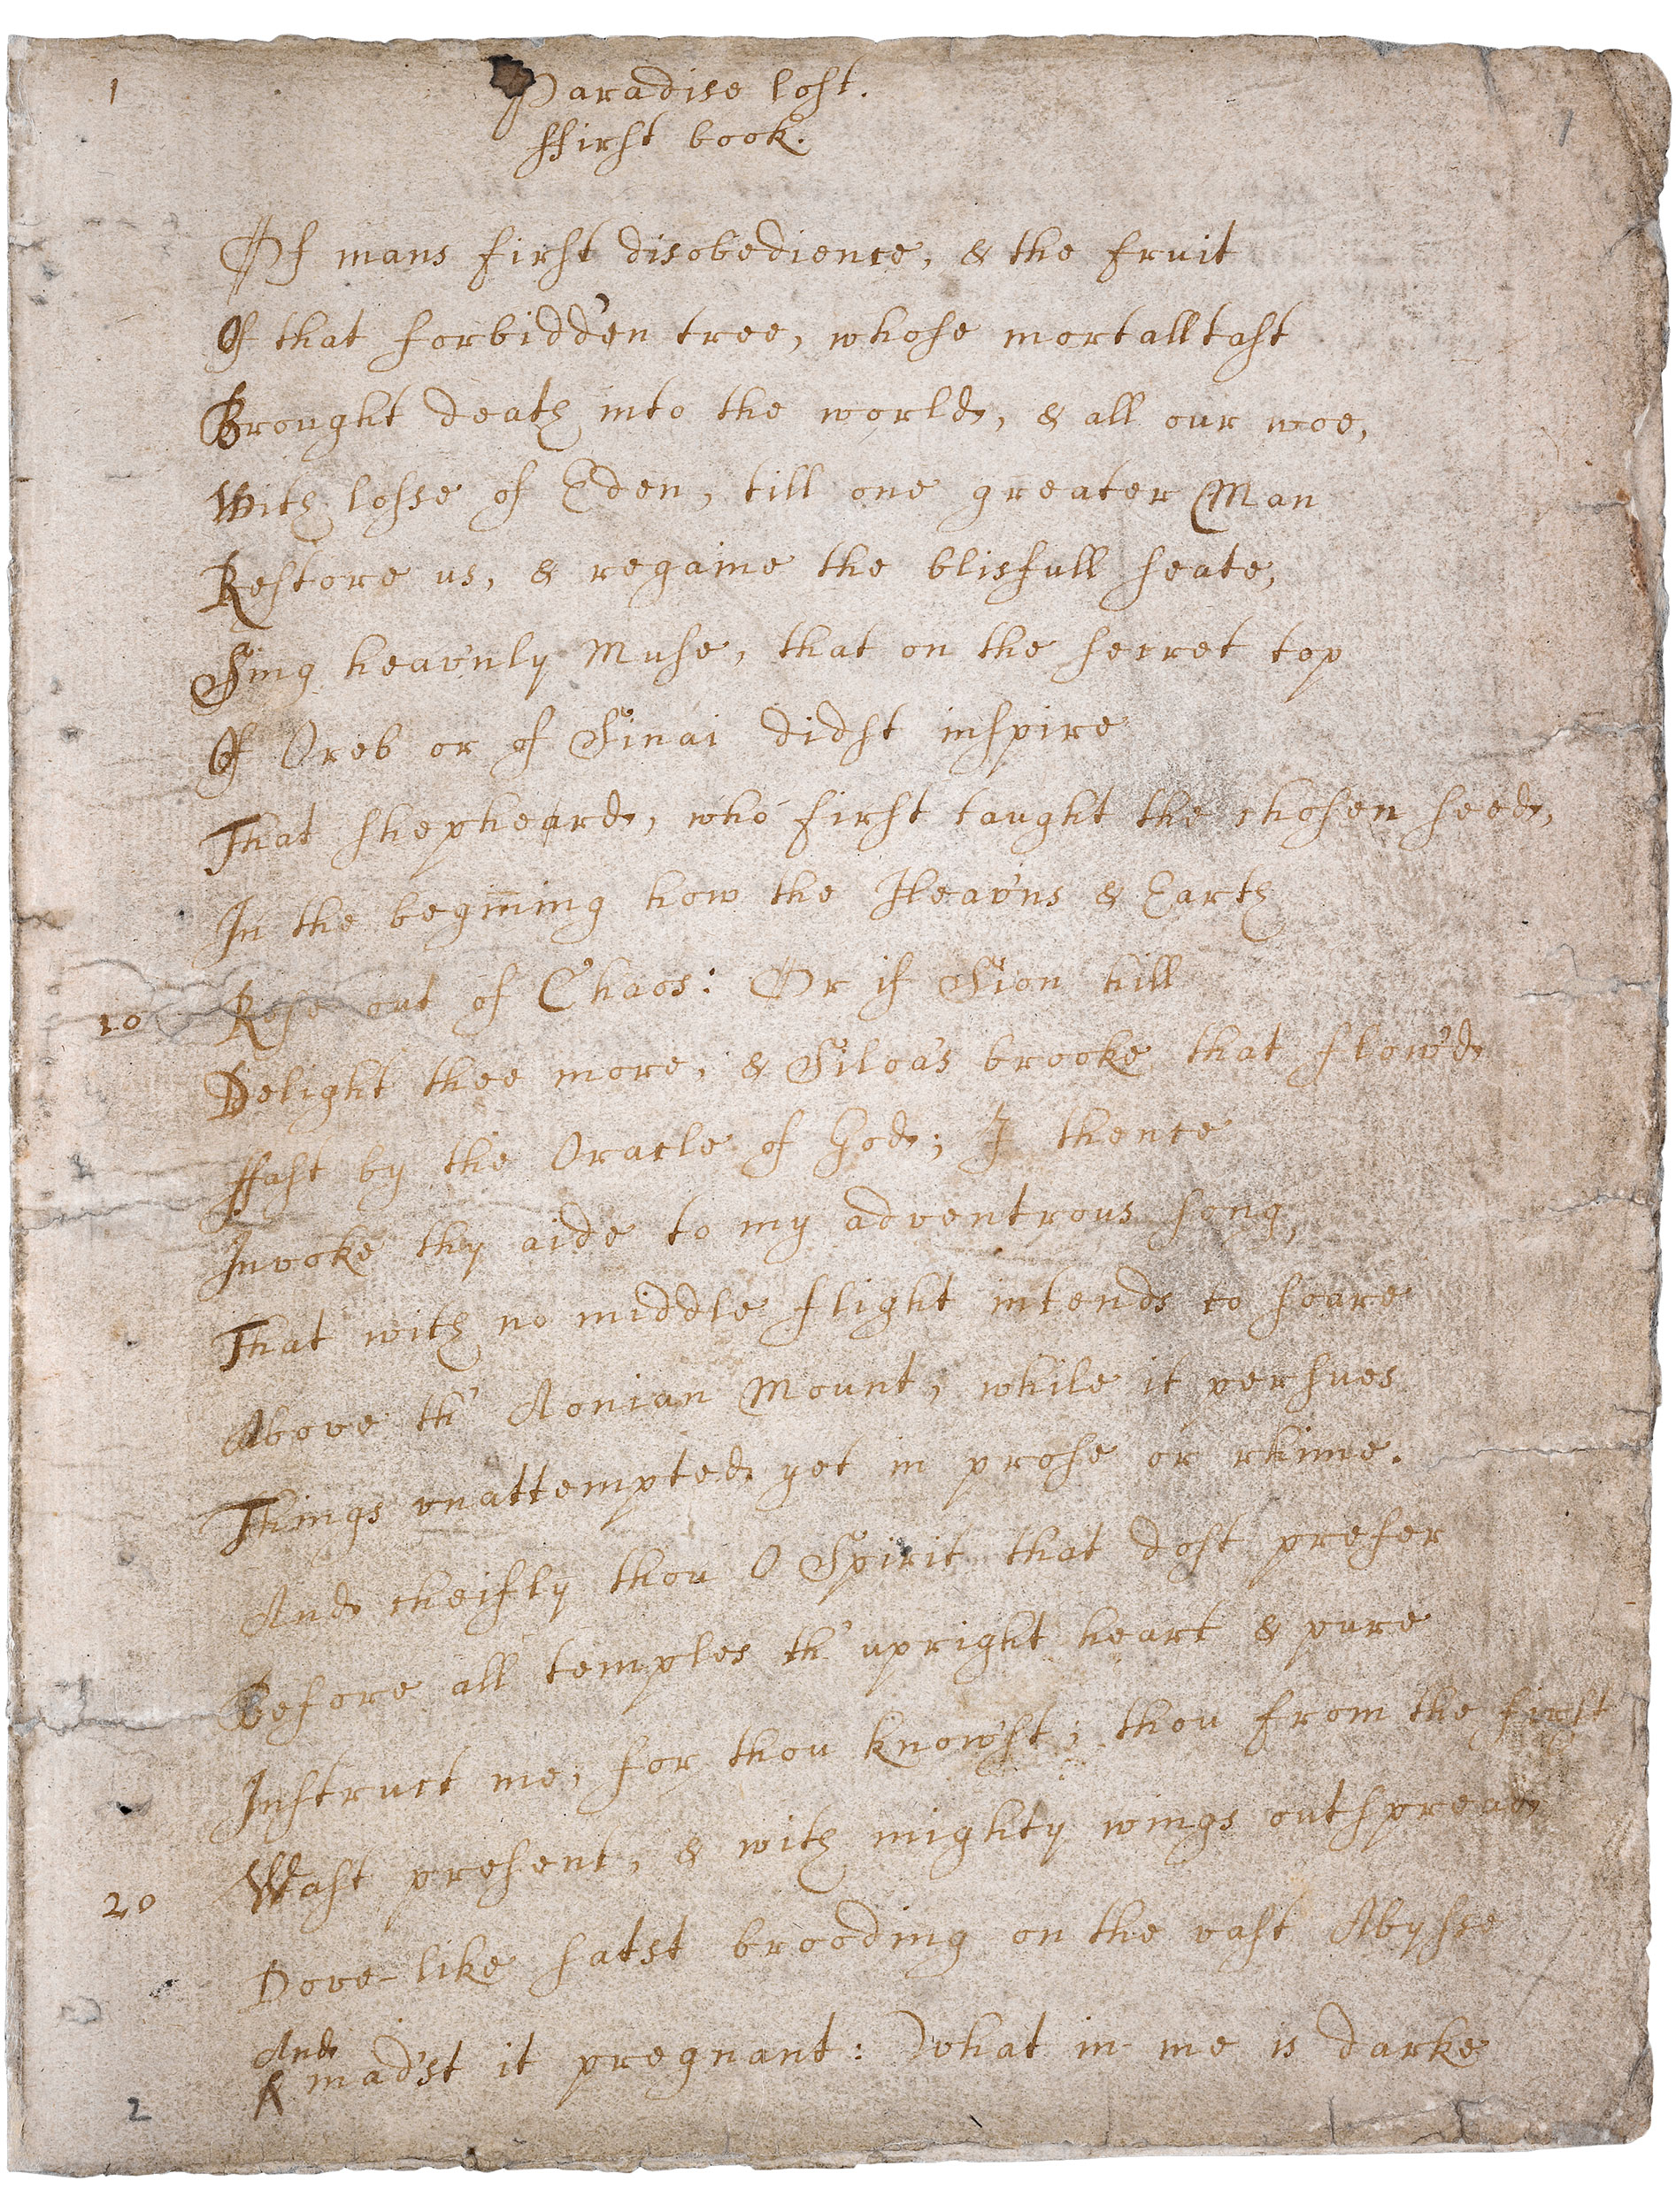 1
Paradise lost.
1
ffirst book.
Of mans first disobedience, & the fruit
Of that forbidd'en tree, whose mortall tast
Brought death into the world, & all our woe,
With losse of Eden, till one greater Man
Restore us, & regaine the blisfull seate,
Sing heav'nly Muse, that on the secret top
Of Oreb or of Sinai didst inspire
That shepheard, who first taught the chosen seed,
In the begin̅ing how the Heav'ns & Earth
10 Rose out of Chaos: Or if Sion hill
Delight thee more, & Siloa's brooke that flow'd
ffast by the Oracle of God; I thence
Invoke thy aide to my adventrous song,
That with no middle flight intends to soare
Above th' Aonian Mount, while it persues
Things vnattempted yet in prose or rhime.
And cheifly thou O Spirit that dost prefer
Before all temples th' upright heart & pure
Instruct me, for thou know'st; thou from the first
20 Wast present, & with mighty wings outspread
Dove-like satst brooding on the vast Abysse
And
mad'st it pregnant: What in me is darke
2